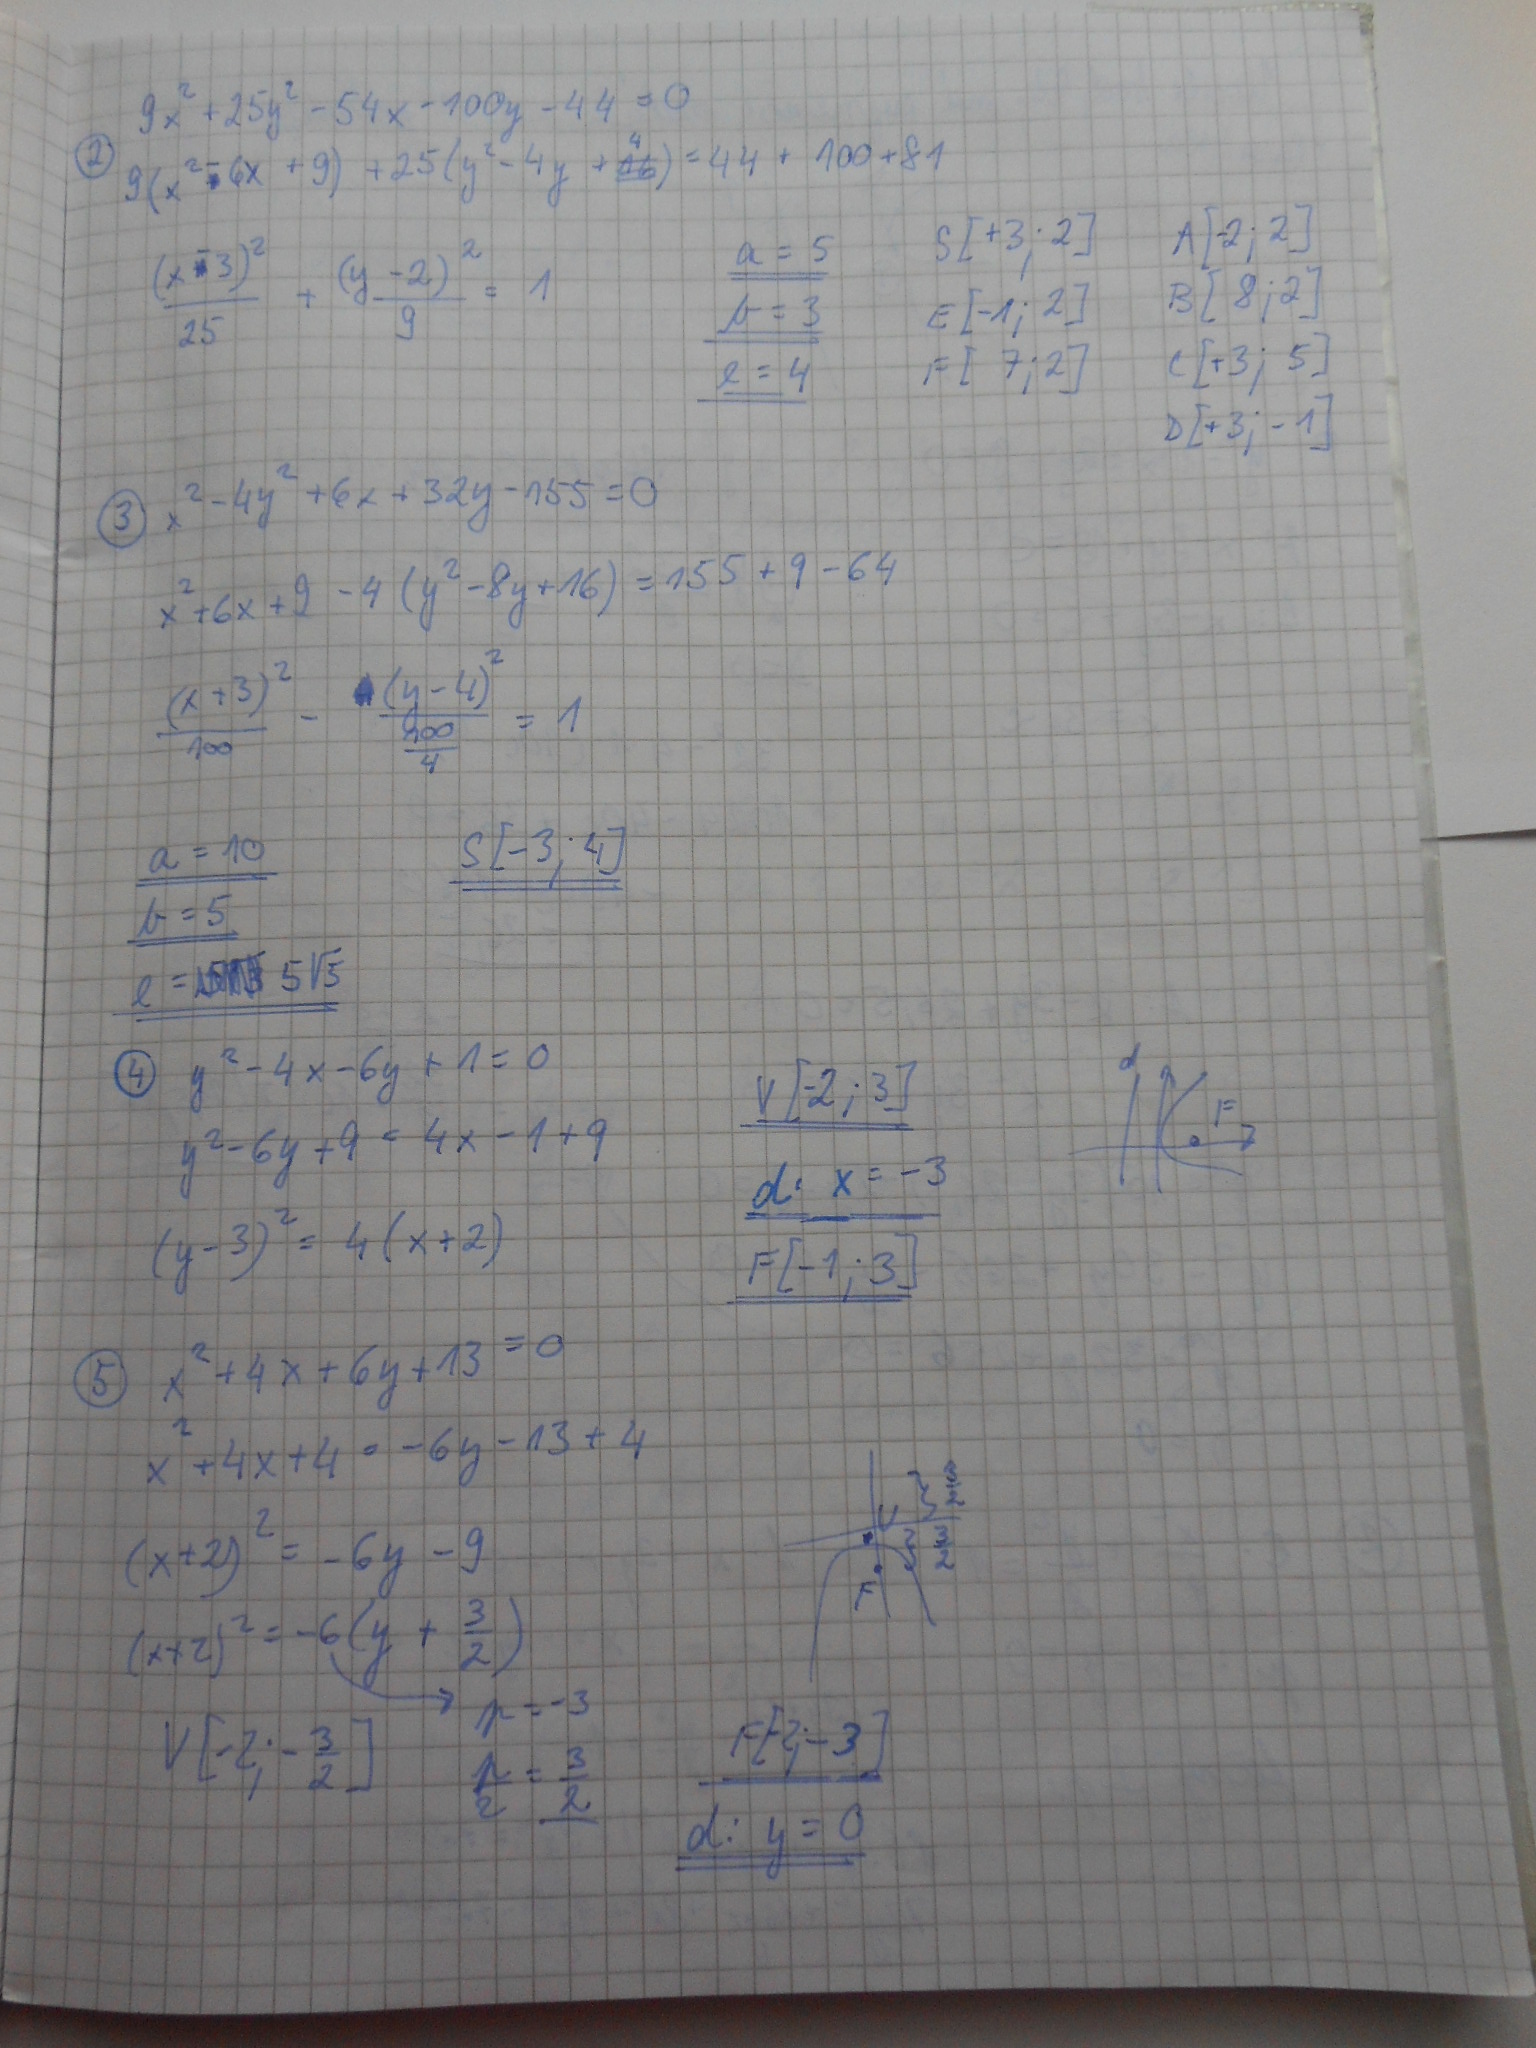 9x² + 25y² - 54x - 100y - 44 = 0
② 9(x² - 6x + 9) + 25(y² - 4y + 4) = 44 + 100 + 81
(x - 3)²/25 + (y - 2)²/9 = 1
a = 5
b = 3
e = 4
S[+3; 2]
E[-1; 2]
F[7; 2]
A[-2; 2]
B[8; 2]
C[+3; 5]
D[+3; -1]
③ x² - 4y² + 6x + 32y - 155 = 0
x² + 6x + 9 - 4(y² - 8y + 16) = 155 + 9 - 64
(x + 3)²/100 - (y - 4)²/(100/4) = 1
a = 10
b = 5
e = 5√5
S[-3; 4]
④ y² - 4x - 6y + 1 = 0
y² - 6y + 9 = 4x - 1 + 9
(y - 3)² = 4(x + 2)
V[-2; 3]
d: x = -3
F[-1; 3]
d
F
⑤ x² + 4x + 6y + 13 = 0
x² + 4x + 4 = -6y - 13 + 4
(x + 2)² = -6y - 9
(x + 2)² = -6(y + 3/2)
V[-2; -3/2]
p = -3
p/2 = 3/2
V
F
3/2
3/2
F[-2; -3]
d: y = 0